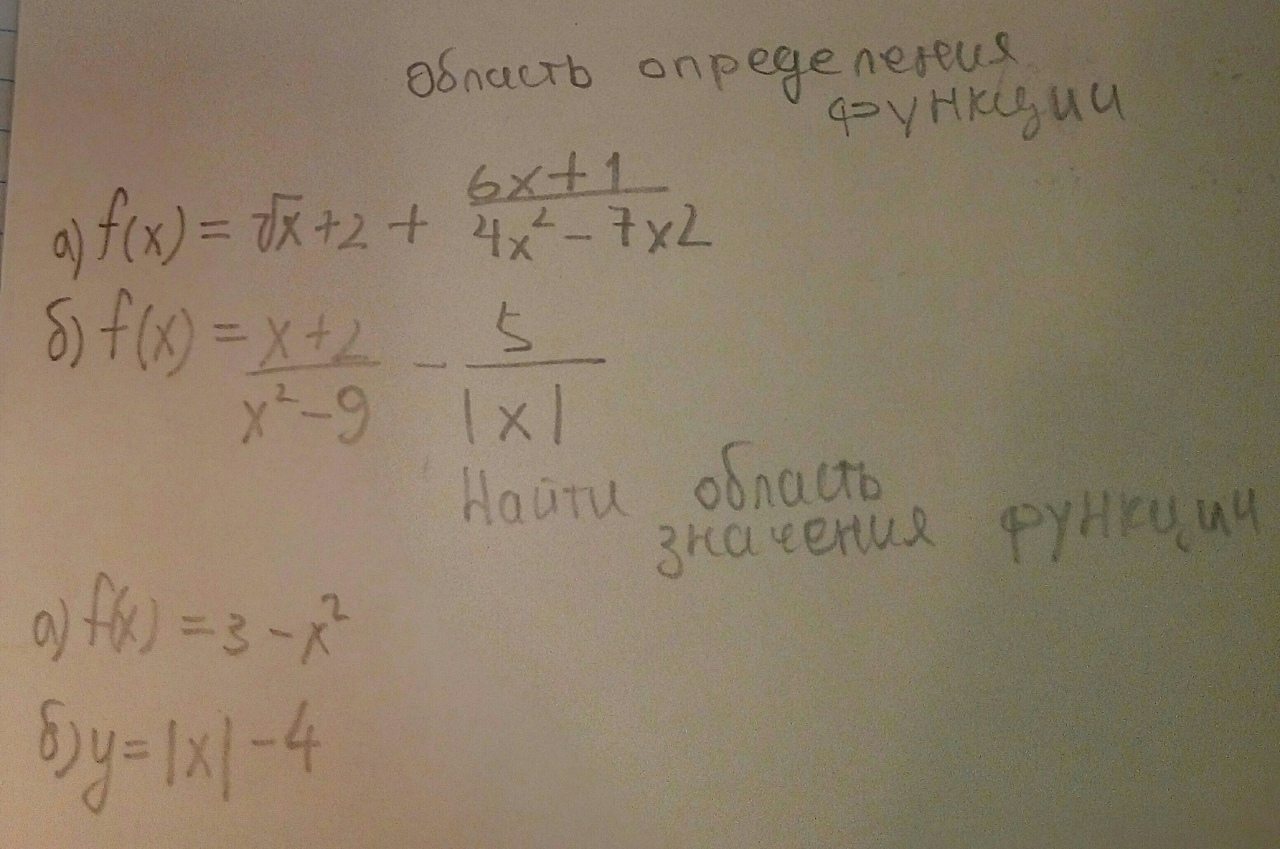 область определения
функции
а) f(x) = √x + 2 + (6x + 1)/(4x² - 7x2)
б) f(x) = (x + 2)/(x² - 9) - 5/|x|
Найти область
значения функции
а) f(x) = 3 - x²
б) y = |x| - 4